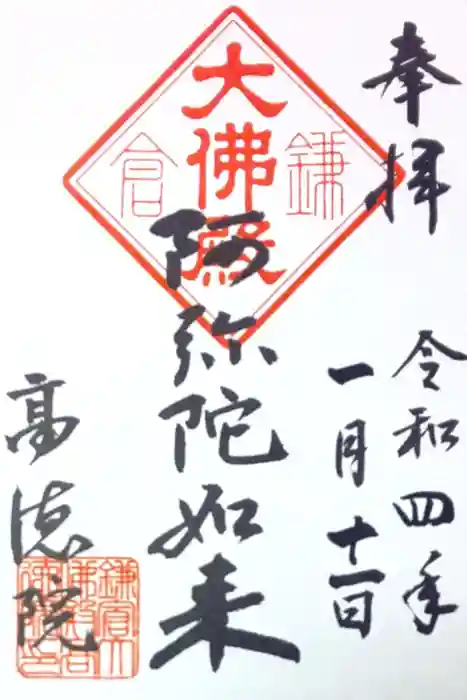 奉拝
令和四年
一月十一日
大佛殿
鎌倉
阿弥陀如来
高徳院